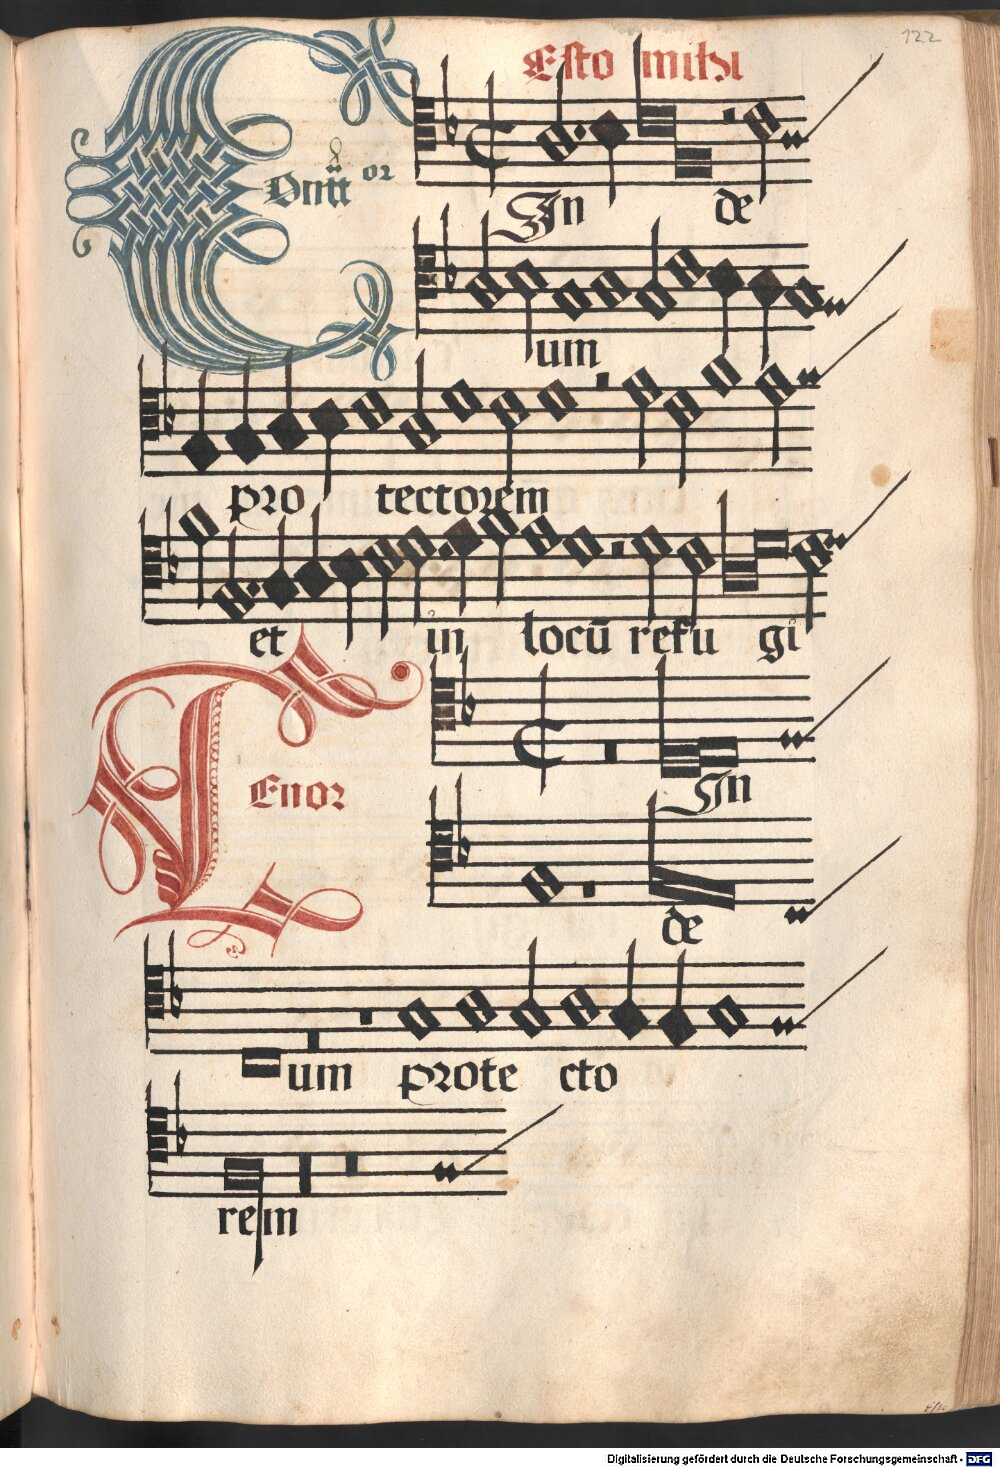 122
Esto mihi
Contraor
In de
um
pro tectorem
et in locū refu gi
Tenor
In
de
um prote cto
rem
Digitalisierung gefördert durch die Deutsche Forschungsgemeinschaft - DFG